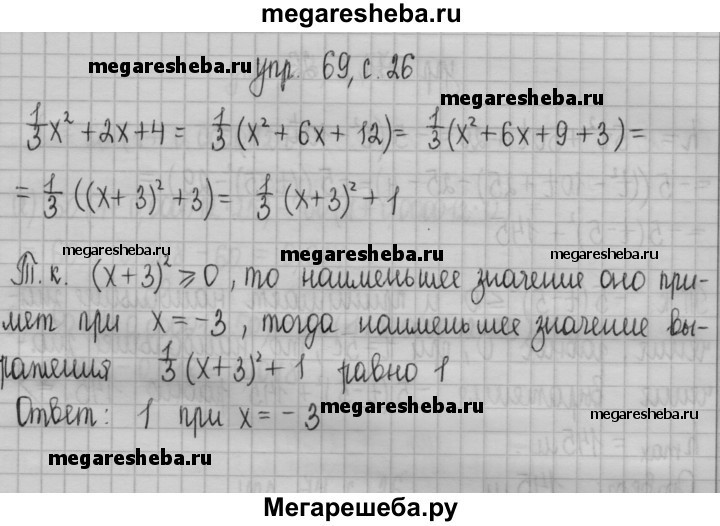 megaresheba.ru
megaresheba.ru упр. 69, с. 26
megaresheba.ru
1/3 x² + 2x + 4 = 1/3 (x² + 6x + 12) = 1/3 (x² + 6x + 9 + 3) =
= 1/3 ((x + 3)² + 3) = 1/3 (x + 3)² + 1
megaresheba.ru megaresheba.ru megaresheba.ru
Т.к. (x + 3)² ⩾ 0, то наименьшее значение оно при-
мет при x = -3, тогда наименьшее значение вы-
ражения 1/3 (x + 3)² + 1 равно 1
Ответ: 1 при x = -3
megaresheba.ru megaresheba.ru
megaresheba.ru
Мегарешеба.ру